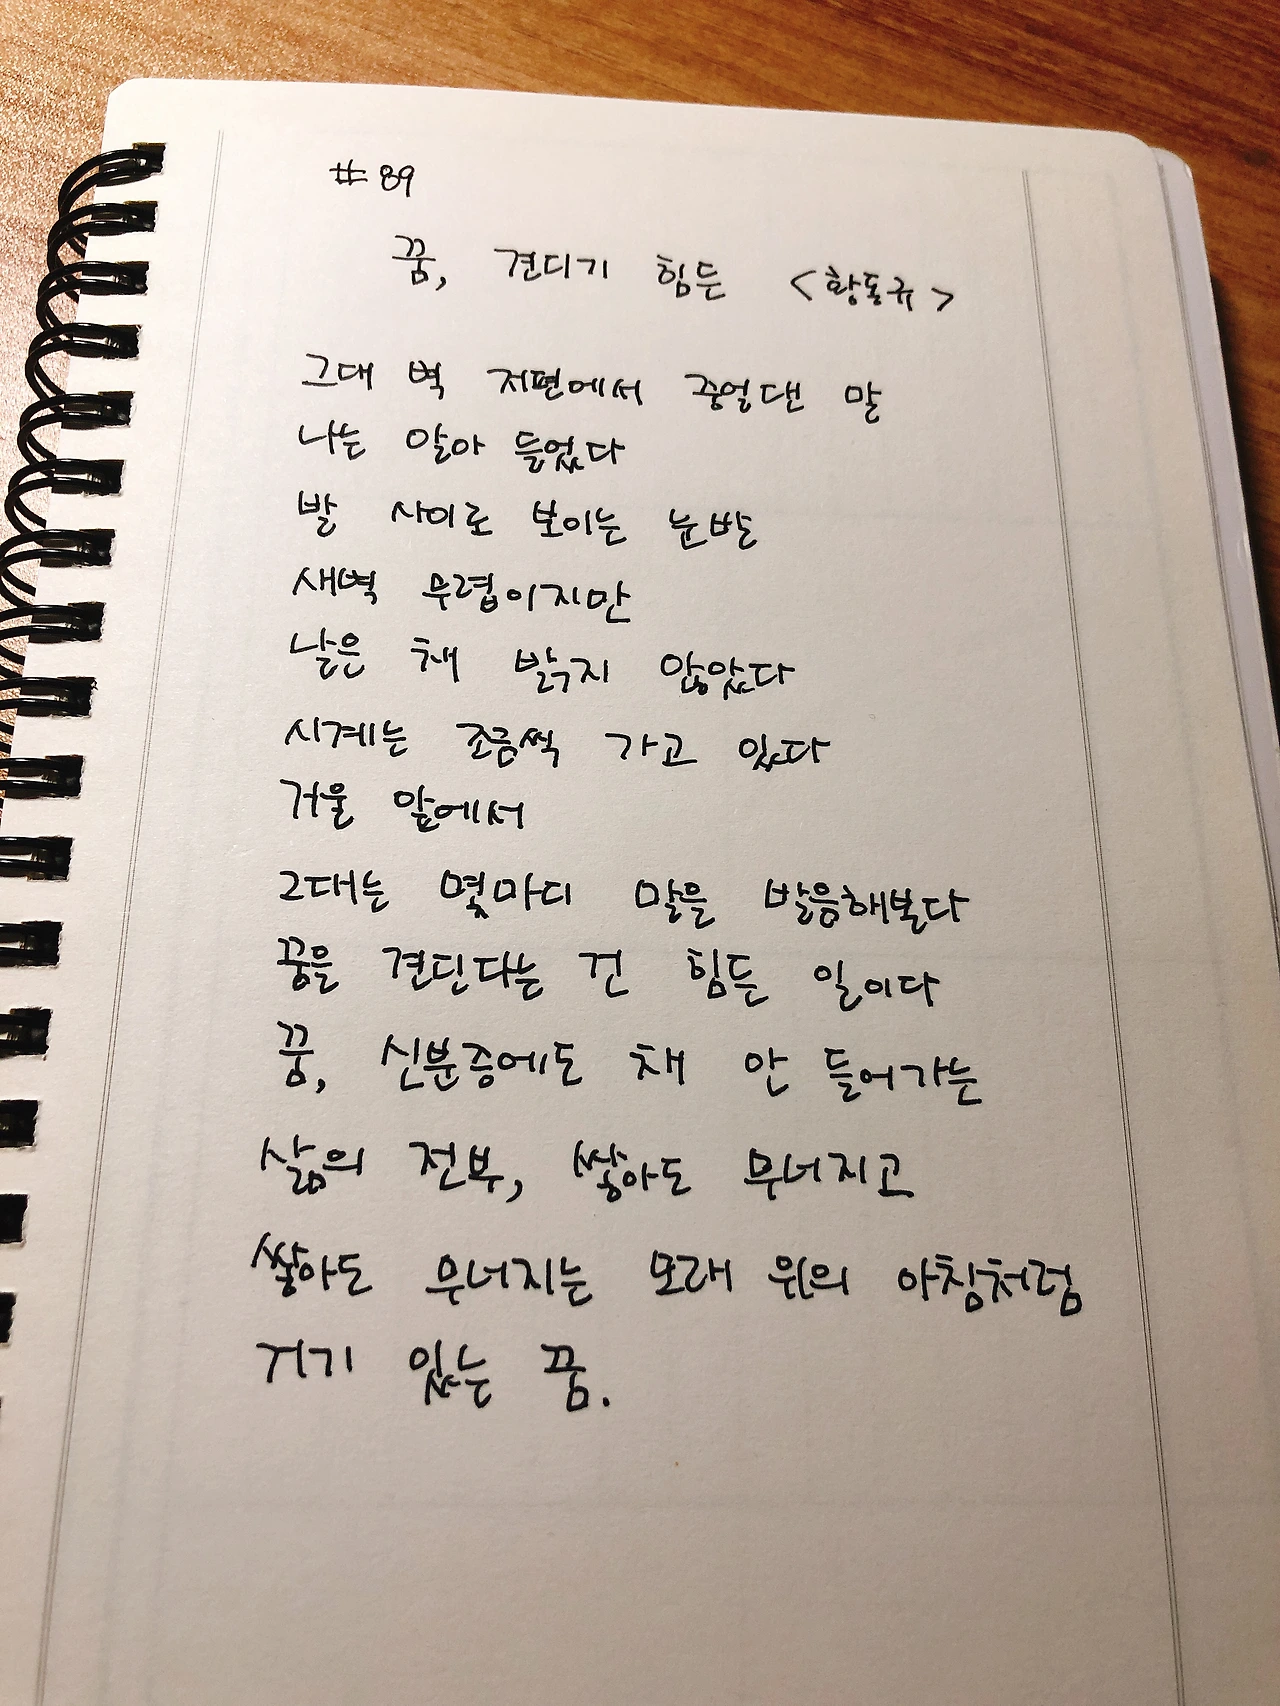 #89
꿈, 견디기 힘든 <황동규>
그대 벽 저편에서 중얼댄 말
나는 알아 들었다
발 사이로 보이는 눈발
새벽 무렵이지만
날은 채 밝지 않았다
시계는 조금씩 가고 있다
거울 앞에서
그대는 몇마디 말을 발음해본다
꿈을 견딘다는 건 힘든 일이다
꿈, 신분증에도 채 안 들어가는
삶의 전부, 쌓아도 무너지고
쌓아도 무너지는 모래 위의 아침처럼
거기 있는 꿈.